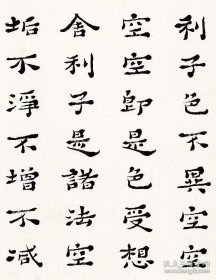 利子色不異空空
空空即是色受想
舍利子是諸法空
垢不淨不增不減